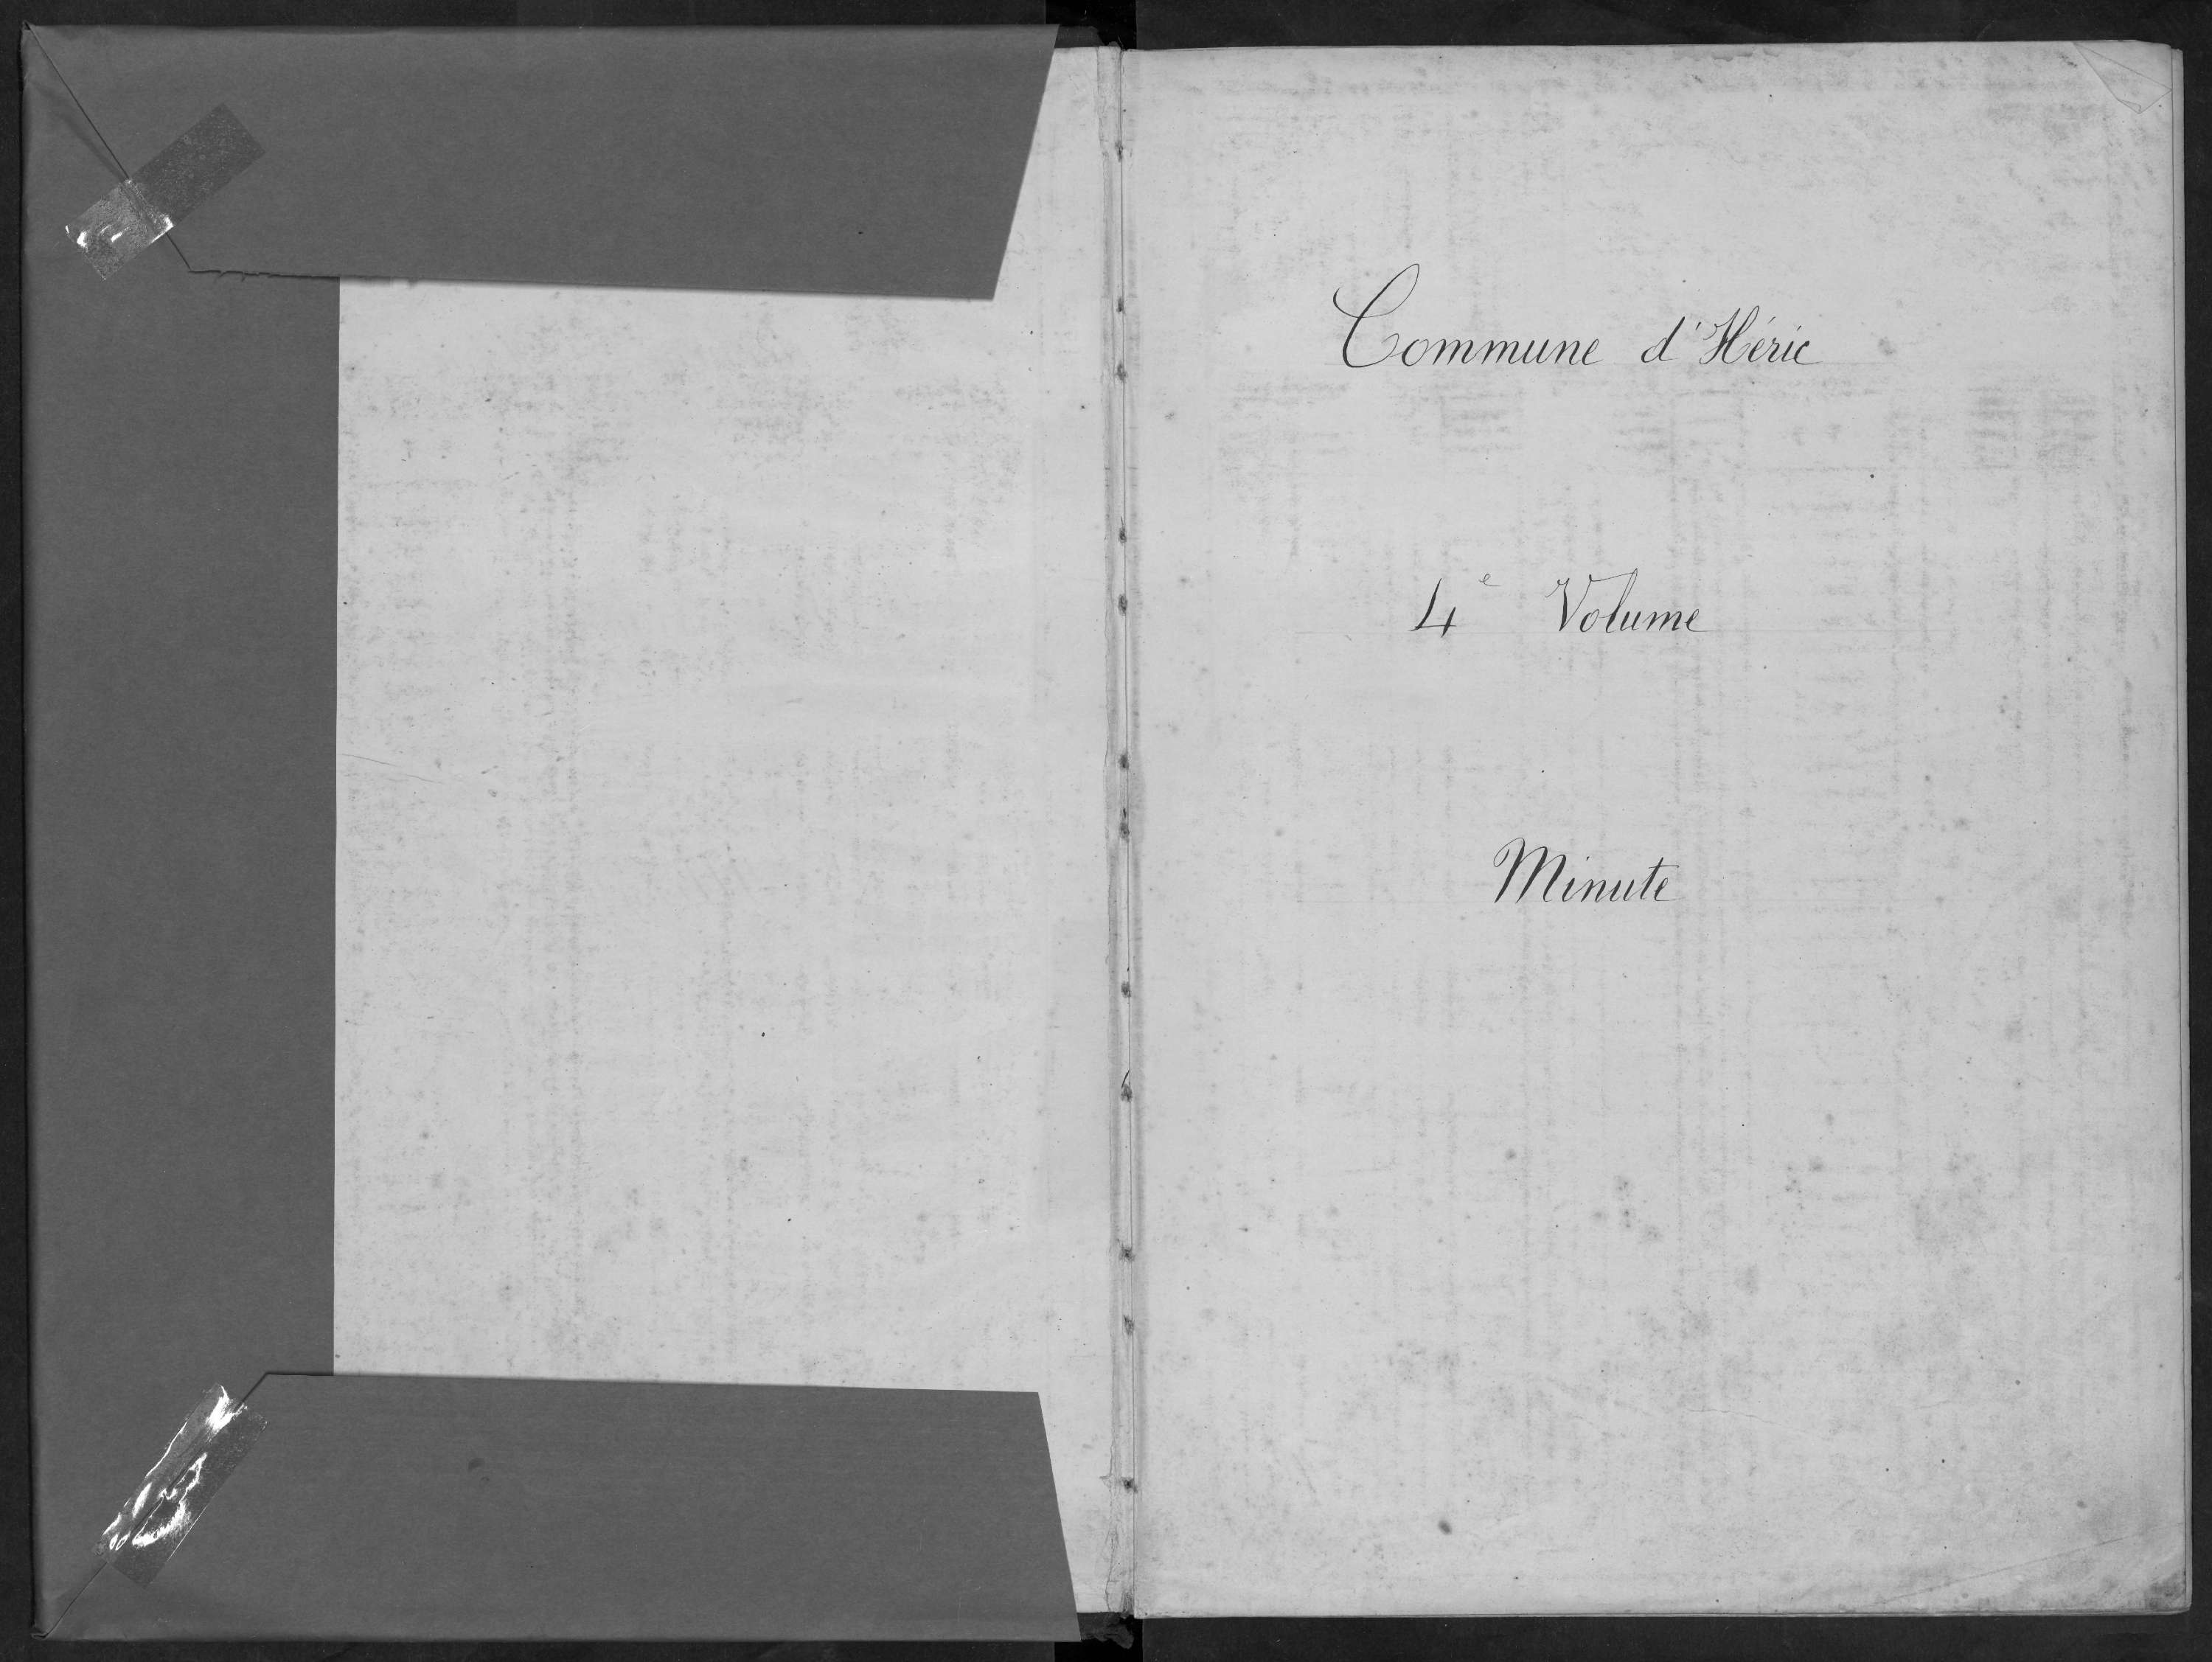 Commune d'Héric
4e Volume
Minute